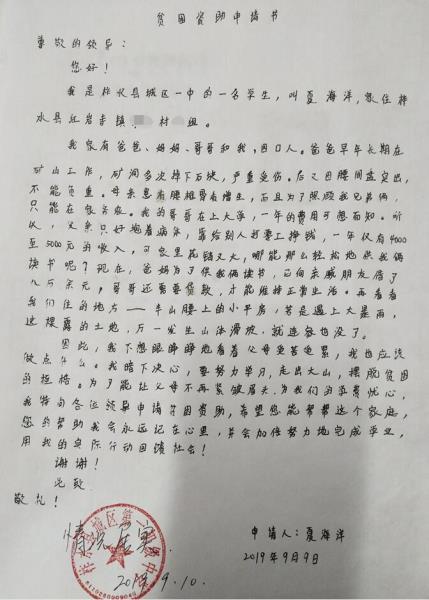 贫困资助申请书
尊敬的领导：
您好！
我是柞水县城区一中的一名学生，叫夏海洋，家住柞
水县红岩寺镇 村 组。
我家有爸爸、妈妈、哥哥和我，四口人。爸爸早年长期在
矿山工作，矿洞多次掉下石块，严重受伤。后又因腰间盘突出，
不能负重。母亲患有腰椎骨骨增生，而且为了照顾我兄弟俩，
只能在家务农。我的哥哥在上大学，一年的费用可想而知。所
以，父亲只好抱着病体，靠给别人打零工挣钱，一年仅有4000
至5000元的收入，可家里花销又大，哪能那么轻松地供我俩
读书呢？现在，爸妈为了供我俩读书，已向亲戚朋友借了
几万余元，哥哥还需要贷款，才能维持正常生活。再看看
我们住的地方——半山腰上的小平房，若是遇上大暴雨，
这裸露的土地，万一发生山体滑坡，就连爸也没了。
因此，我不想眼睁睁地看着父母受苦受累，我也应该
做点什么。我暗下决心，要努力学习，走出大山，摆脱贫困
的桎梏。为了能让父母不再紧皱眉头，为我们的学费忧心，
我特向各位领导申请贫困资助，希望您能帮帮这个家庭，
您的帮助我会永远记在心里，并会加倍努力地完成学业，
用我的实际行动回馈社会！
谢谢！
此致
敬礼！
申请人：夏海洋
2019年9月9日
情况属实.
2019.9.10.